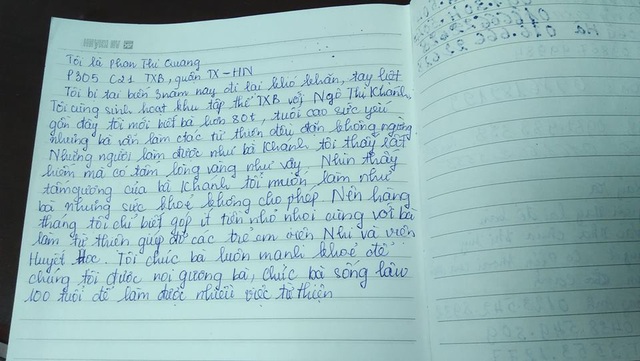 Tôi là Phan Thị Quang
P305 C21 TXB, quận TX-HN
Tôi bị tai biến 3 năm nay đi lại khó khăn, tay liệt
Tôi cùng sinh hoạt khu tập thể TXB với Ngô Thị Khánh
gần đây tôi mới biết bà hơn 80t, tuổi cao sức yếu
nhưng bà vẫn làm ctác từ thiện đều đặn không ngừng
Những người làm được như bà Khánh tôi thấy rất
hiếm mà có tấm lòng vàng như vậy. Nhìn thấy
tấm gương của bà Khánh tôi muốn làm như
bà nhưng sức khoẻ không cho phép. Nên hàng
tháng tôi chỉ biết góp ít tiền nhỏ nhoi cùng với bà
làm từ thiện giúp đỡ các trẻ em viện Nhi và viện
Huyết Học. Tôi chúc bà luôn mạnh khoẻ để
chúng tôi được noi gương bà, chúc bà sống lâu
100 tuổi để làm được nhiều việc từ thiện